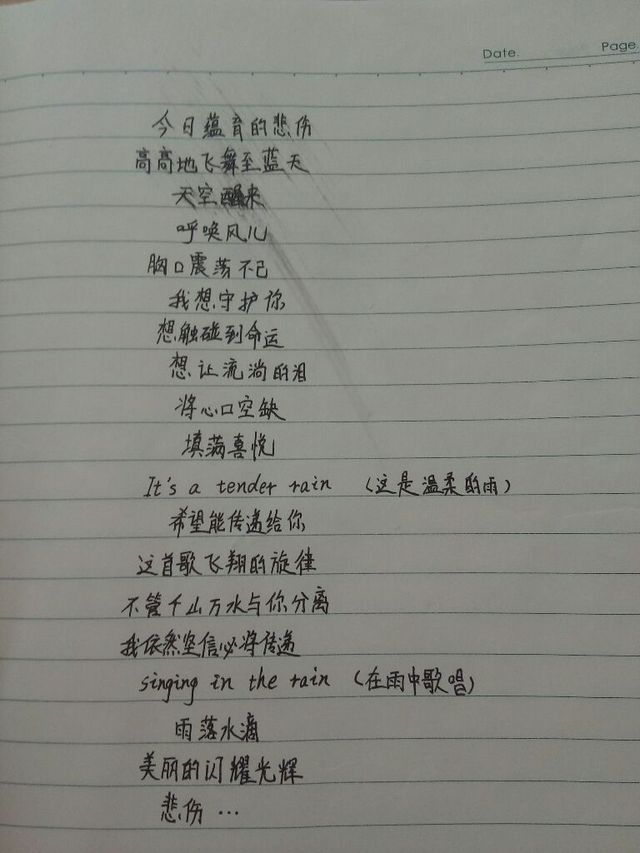 Date.
Page.
今日蕴育的悲伤
高高地飞舞至蓝天
天空醒来
呼唤风儿
胸口震荡不已
我想守护你
想触碰到命运
想让流淌的泪
将心口空缺
填满喜悦
It's a tender rain （这是温柔的雨）
希望能传递给你
这首歌飞翔的旋律
不管千山万水与你分离
我依然坚信必将传递
singing in the rain （在雨中歌唱）
雨落水滴
美丽的闪耀光辉
悲伤…